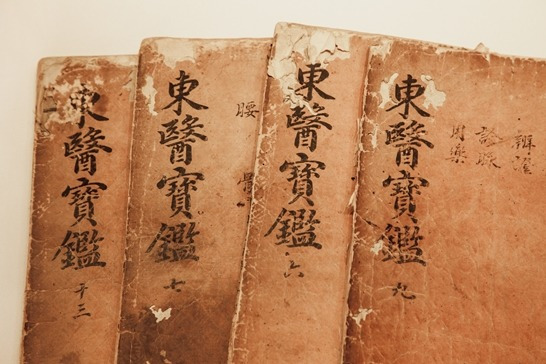 辨證
診脈
用藥
東醫寶鑑 九
東醫寶鑑 六
腰
東醫寶鑑 七
東醫寶鑑 十三